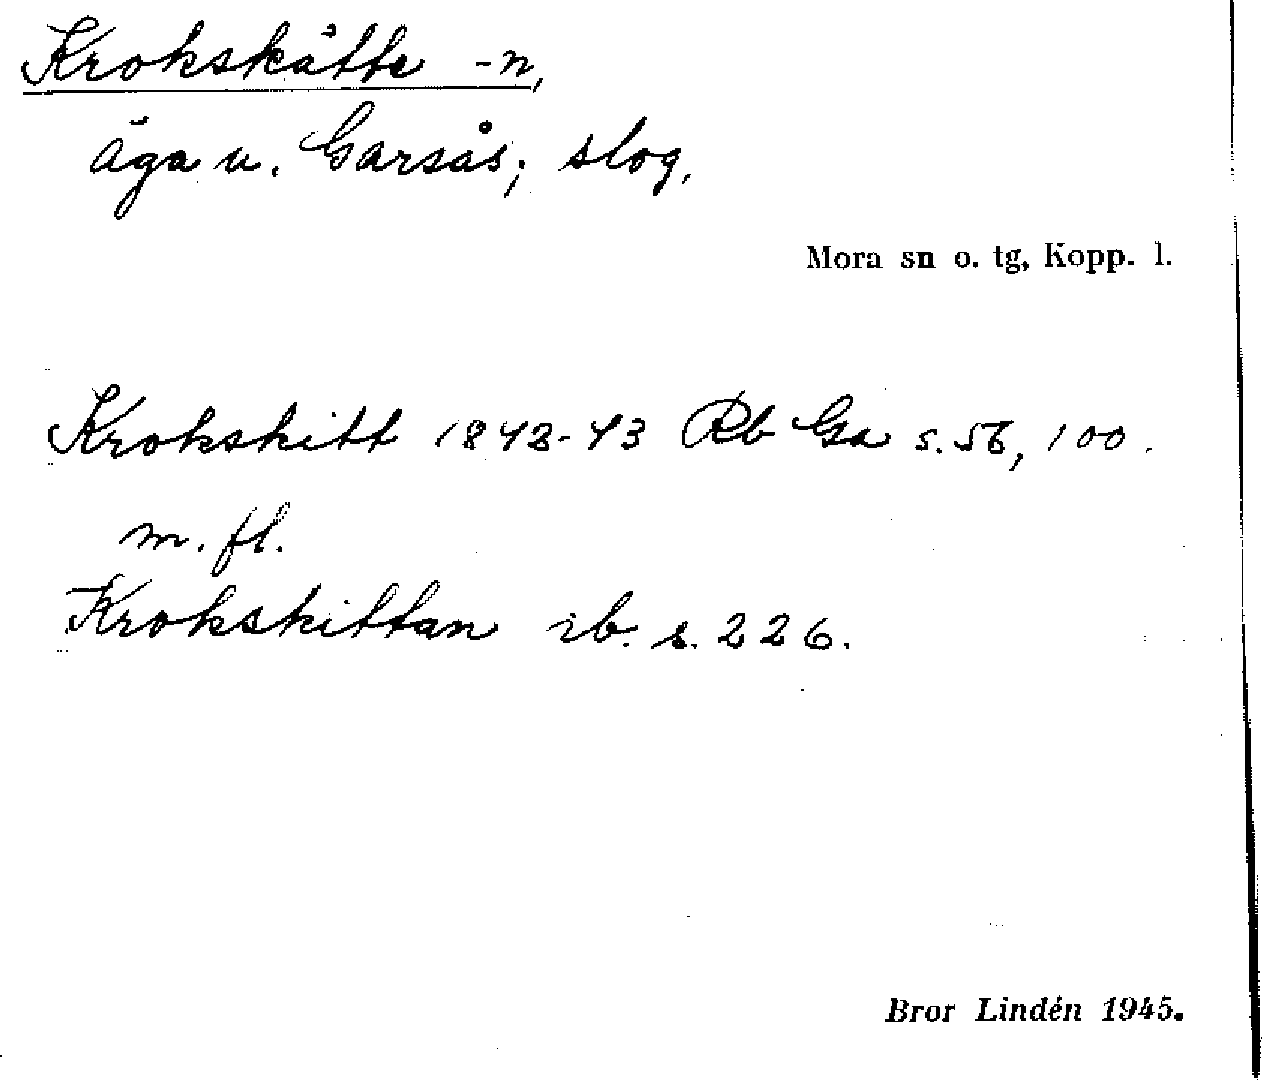 Krokskåtte -n,
äga u. Garsås; slog.
Mora sn o. tg, Kopp. l.
Krokskitt 1842-43 Rb Ga s. 56, 100.
m. fl.
Krokskittan ib. s. 226.
Bror Lindén 1945.